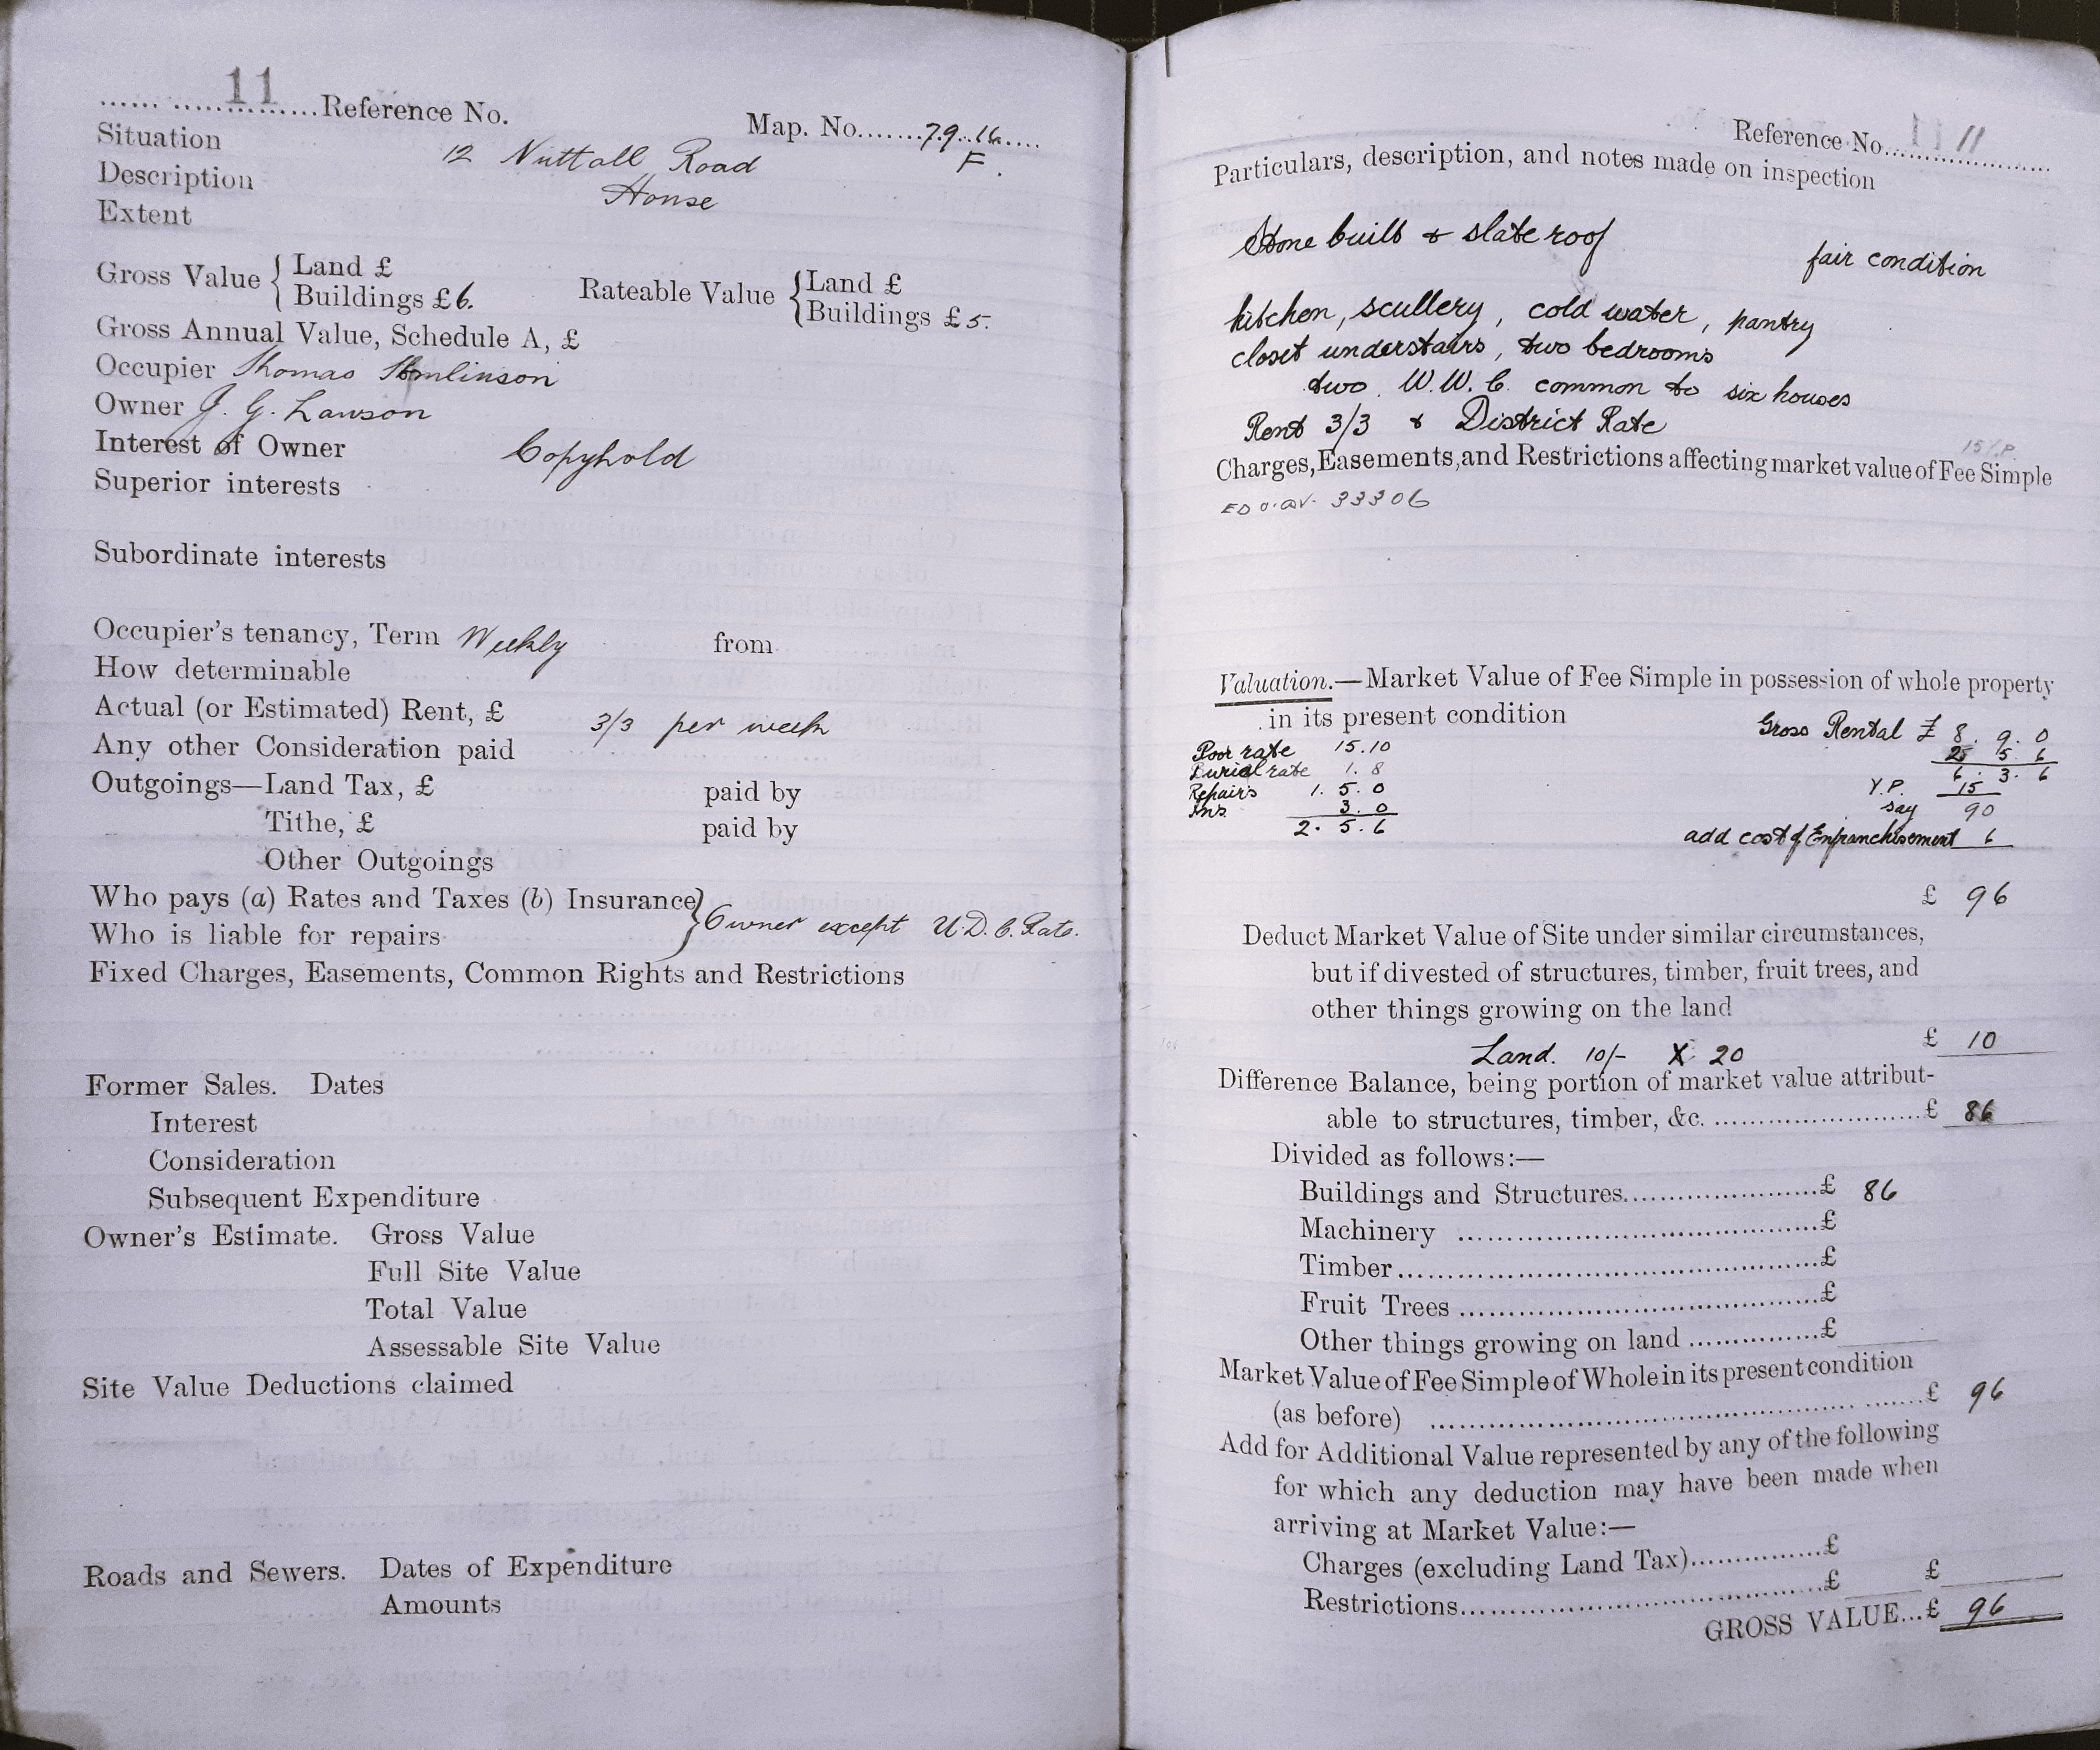 11
...... ..............Reference No.
Map. No.......79.16.....
F.
Situation 12 Nuttall Road
Description House
Extent
Gross Value { Land £
Buildings £6.
Rateable Value { Land £
Buildings £5.
Gross Annual Value, Schedule A, £
Occupier Thomas Tomlinson
Owner J. G. Lawson
Interest of Owner Copyhold
Superior interests
Subordinate interests
Occupier's tenancy, Term Weekly from
How determinable
Actual (or Estimated) Rent, £ 3/3 per week
Any other Consideration paid
Outgoings—Land Tax, £ paid by
Tithe, £ paid by
Other Outgoings
Who pays (a) Rates and Taxes (b) Insurance
Who is liable for repairs } Owner except U.D.C. Rate.
Fixed Charges, Easements, Common Rights and Restrictions
Former Sales. Dates
Interest
Consideration
Subsequent Expenditure
Owner's Estimate. Gross Value
Full Site Value
Total Value
Assessable Site Value
Site Value Deductions claimed
Roads and Sewers. Dates of Expenditure
Amounts
Reference No. 11
Particulars, description, and notes made on inspection
Stone built & slate roof
fair condition
kitchen, scullery, cold water, pantry
closet understairs, two bedrooms
two W.W.C. common to six houses
Rent 3/3 & District Rate
15 Y.P.
Charges, Easements, and Restrictions affecting market value of Fee Simple
33306
Valuation.—Market Value of Fee Simple in possession of whole property
in its present condition
Gross Rental £ 8. 9. 0
2 5. 6
6. 3. 6
Y.P. 15
say 90
add cost of Enfranchisement 6
Poor rate 15.10
Burial rate 1. 8
Repairs 1. 5. 0
Ins. 3. 0
2. 5. 6
£ 96
Deduct Market Value of Site under similar circumstances,
but if divested of structures, timber, fruit trees, and
other things growing on the land
Land. 10/- X 20 £ 10
Difference Balance, being portion of market value attribut-
able to structures, timber, &c. ........................£ 86
Divided as follows:—
Buildings and Structures......................£ 86
Machinery ..........................................£
Timber.................................................£
Fruit Trees ..........................................£
Other things growing on land ...............£
Market Value of Fee Simple of Whole in its present condition
(as before) ..................................................£ 96
Add for Additional Value represented by any of the following
for which any deduction may have been made when
arriving at Market Value:—
Charges (excluding Land Tax)...............£
Restrictions..........................................£ £
GROSS VALUE...£ 96